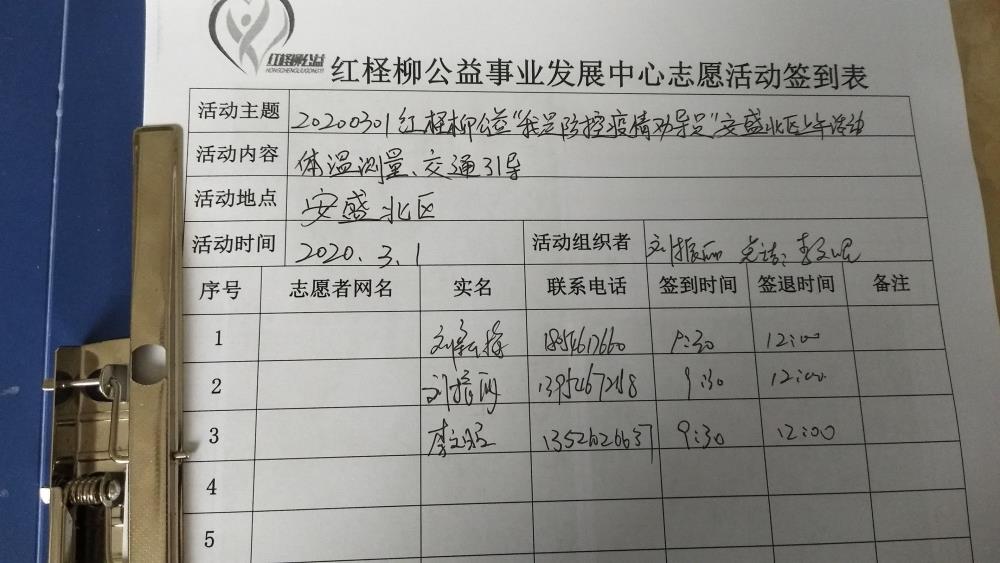 红柽柳公益
HONGCHENGLIUGONGYI
红柽柳公益事业发展中心志愿活动签到表
活动主题 20200301红柽柳公益“我是防控疫情劝导员”安盛北区上午活动
活动内容 体温测量、交通引导
活动地点 安盛北区
活动时间 2020.3.1 活动组织者 刘振丽
序号 志愿者网名 实名 联系电话 签到时间 签退时间 备注
1 9:30 12:00
2 9:30 12:00
3 13526626637 9:30 12:00
4
5